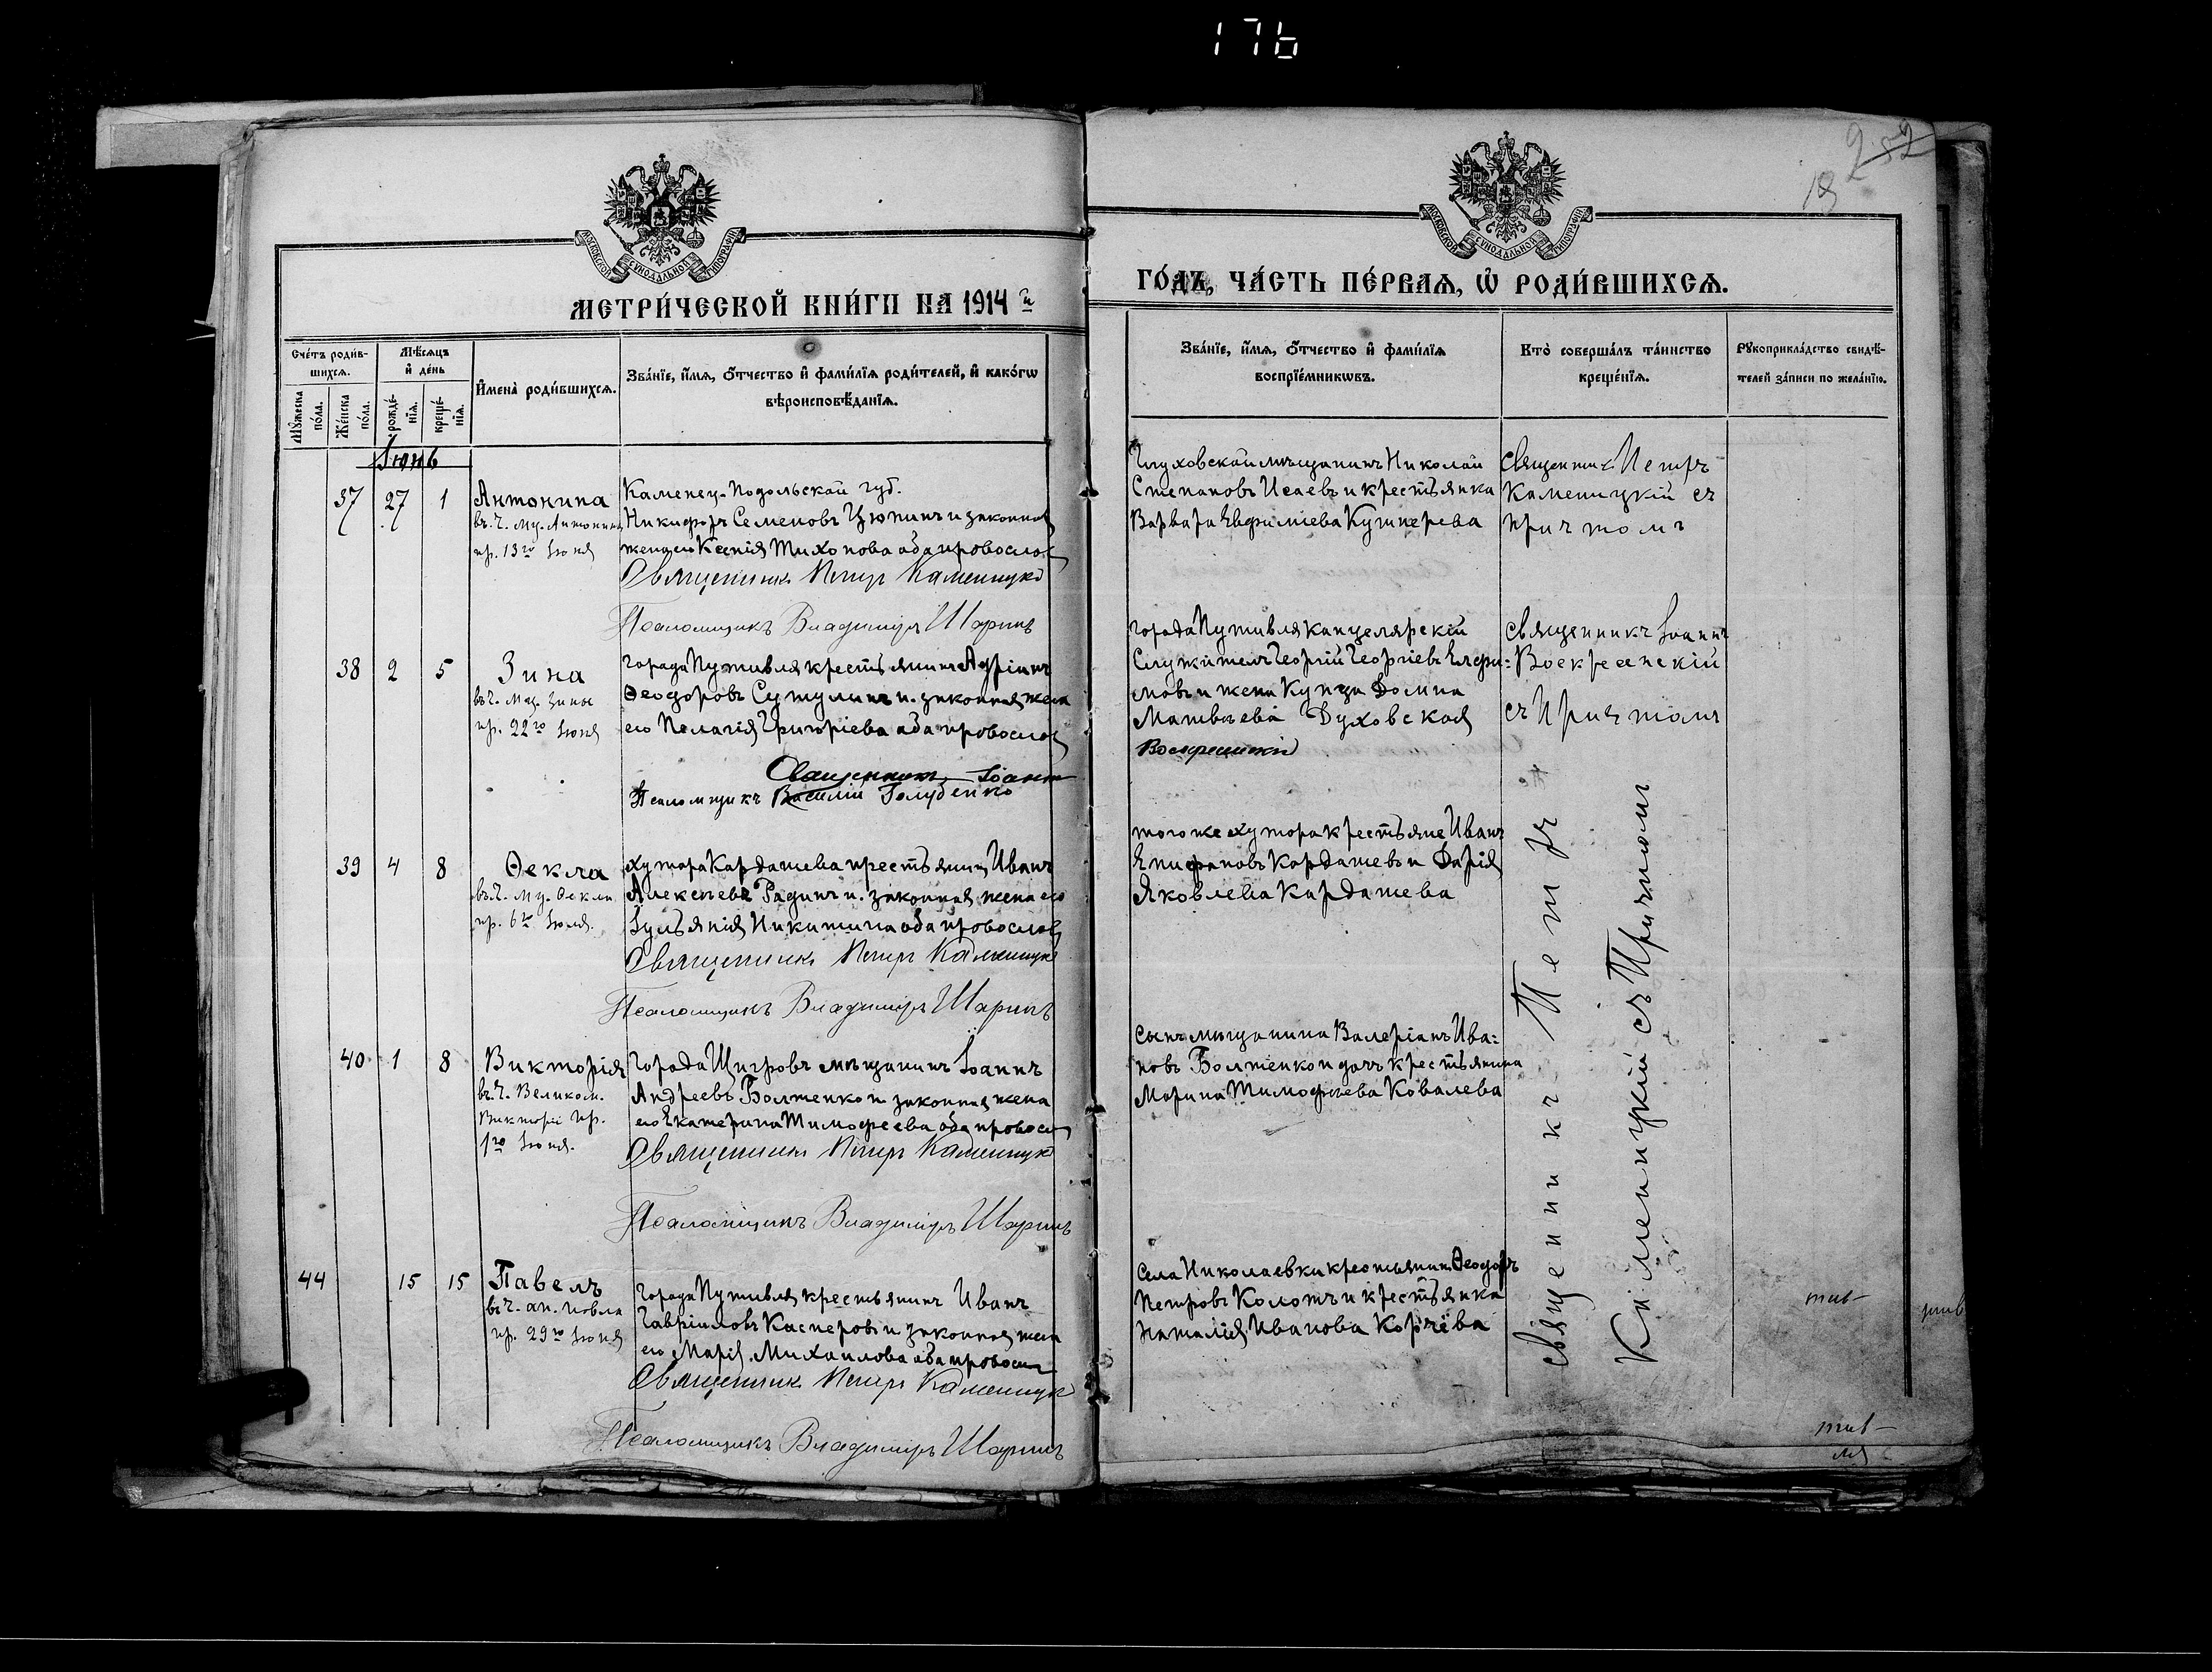 176
252
18
МОСКОВСКОЙ СѴНОДАЛЬНОЙ ТИПОГРАФІИ
МОСКОВСКОЙ СѴНОДАЛЬНОЙ ТИПОГРАФІИ
МЕТРИ́ЧЕСКОЙ КНИ́ГИ НА 1914 й
ГО́ДЪ, ЧА́СТЬ ПЕ́РВАЯ, Ѡ РОДИ́ВШИХСЯ.
Сче́тъ роди́в-
шихся.
Мѣ́сяцъ
и де́нь
Мꙋ́жеска по́ла.
Же́нска по́ла.
рожде́-нїя.
креще́-нїя.
Имена̀ роди́вшихся.
Зва́нїе, и́мя, о́тчество и фами́лїя роди́телей, и како́гѡ
вѣроисповѣ́данїя.
Зва́нїе, и́мя, о́тчество и фами́лїя
воспрїе́мникѡвъ.
Кто̀ соверша́лъ та́инство
креще́нїя.
Рꙋкоприкла́дство свидѣ́-
телей за́писи по жела́нїю.
Іюнь
37 27 1 Антонина
въ ч. му. Антонины
пр. 13го Іюня
Каменец-Подольской губ.
Никифоръ Семеновъ Цюпинъ и законная
жена его Ксенія Тихонова оба православ
Священникъ Петръ Каменицкій
Псаломщикъ Владиміръ Шаринъ
Глуховской мѣщанинъ Николай
Степановъ Исаевъ и крестьянка
Варвара Евфиміева Кушнерева
Священник Петръ
Каменицкій съ
причтомъ
38 2 5 Зина
въ ч. мц. Зины
пр. 22го Іюня
Города Путивля крестьянинъ Адріанъ
Ѳеодоровъ Сутулинъ и законная жена
его Пелагія Григоріева оба православ
Священникъ Іоаннъ
Воскресенскій
Псаломщикъ Василій Голубенко
города Путивля канцелярскій
Служитель Георгій Георгіевъ Елфи=
мовъ и жена Купца Домна
Матвѣева Духовская
Священникъ Іоаннъ
Воскресенскій
съ Причтомъ
39 4 8 Ѳекла
въ ч. му. Ѳеклы
пр. 6го Іюня.
хутора Кардашева крестьянинъ Иванъ
Алексѣевъ Радинъ и законная жена его
Іульянія Никитина оба православ
Священникъ Петръ Каменицкій
Псаломщикъ Владиміръ Шаринъ
того же хутора крестьяне Иванъ
Епифановъ Кардашевъ и Дарія
Яковлева Кардашева
40 1 8 Викторія
въ ч. Великом.
Викторіи пр.
1го Іюня.
Города Щигровъ мѣщанинъ Іоаннъ
Андреевъ Болтенко и законная жена
его Екатерина Тимофеева оба правосл
Священникъ Петръ Каменицкій
Псаломщикъ Владиміръ Шаринъ
сынъ мѣщанина Валеріанъ Ива=
новъ Болтенко и дочь крестьянина
Марина Тимофѣева Ковалева
44 15 15 Павелъ
въ ч. ап. Павла
пр. 29го Іюня
Города Путивля крестьянинъ Иванъ
Гавріиловъ Касперовъ и законная жена
его Марія Михаилова оба правосл
Священникъ Петръ Каменицкій
Псаломщикъ Владиміръ Шаринъ
Села Николаевки крестьянинъ Ѳеодоръ
Петровъ Колотъ и крестьянка
Наталія Иванова Корчева
Священникъ Петръ
Каменицкій съ Причтомъ
тив-
тив-
ля